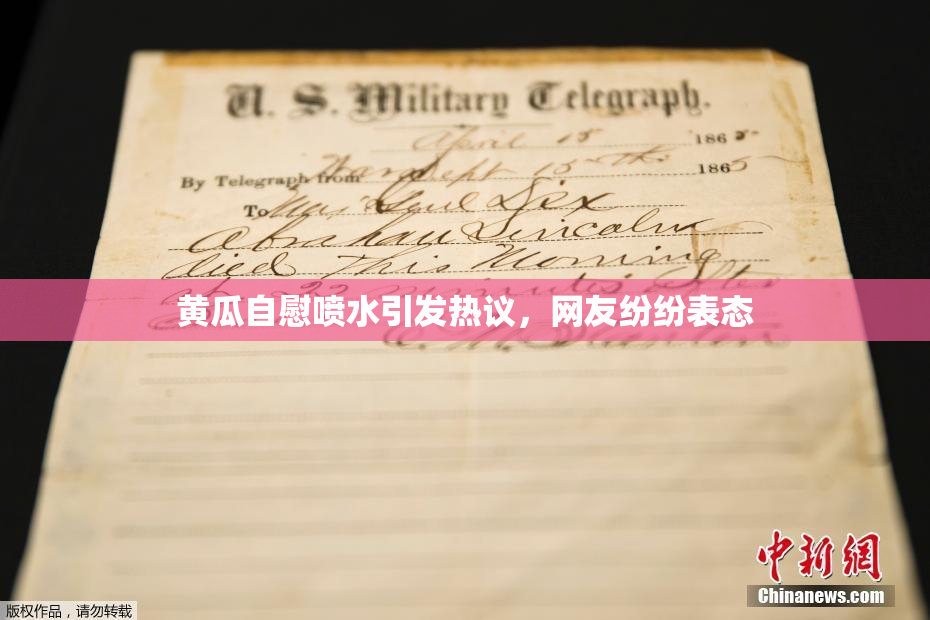 U. S. Military Telegraph.
April 15 1865
By Telegraph from War Dept 15th 1865
To Maj Genl Dix
Abraham Lincoln
died This Morning
at 22 minutes after
黄瓜自慰喷水引发热议，网友纷纷表态
E. M. Stanton
中新网
Chinanews.com
版权作品，请勿转载